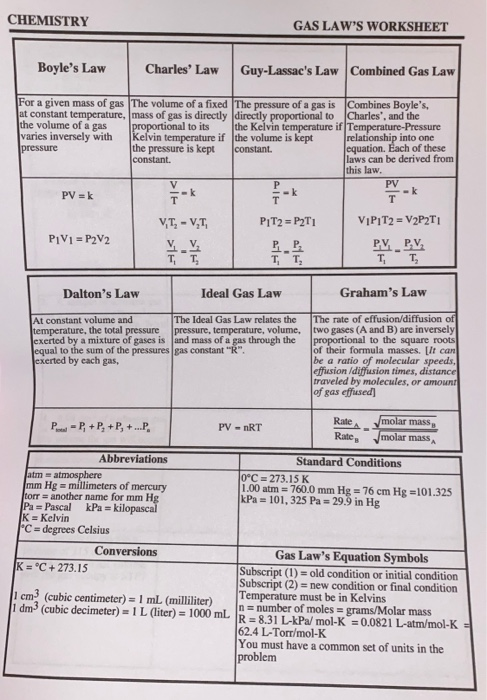 CHEMISTRY
GAS LAW'S WORKSHEET
Boyle's Law
Charles' Law
Guy-Lassac's Law
Combined Gas Law
For a given mass of gas
at constant temperature,
the volume of a gas
varies inversely with
pressure
The volume of a fixed
mass of gas is directly
proportional to its
Kelvin temperature if
the pressure is kept
constant.
The pressure of a gas is
directly proportional to
the Kelvin temperature if
the volume is kept
constant.
Combines Boyle's,
Charles', and the
Temperature-Pressure
relationship into one
equation. Each of these
laws can be derived from
this law.
PV = k
P1V1 = P2V2
V/T = k
V₁T₂ = V₂T₁
V₁/T₁ = V₂/T₂
P/T = k
P1T2 = P2T1
P₁/T₁ = P₂/T₂
PV/T = k
V1P1T2 = V2P2T1
P₁V₁/T₁ = P₂V₂/T₂
Dalton's Law
Ideal Gas Law
Graham's Law
At constant volume and
temperature, the total pressure
exerted by a mixture of gases is
equal to the sum of the pressures
exerted by each gas,
The Ideal Gas Law relates the
pressure, temperature, volume,
and mass of a gas through the
gas constant "R".
The rate of effusion/diffusion of
two gases (A and B) are inversely
proportional to the square roots
of their formula masses. [It can
be a ratio of molecular speeds,
effusion /diffusion times, distance
traveled by molecules, or amount
of gas effused]
P = P₁ + P₂ + P₃ + ...Pₙ
PV = nRT
Rate A / Rate B = √molar mass B / √molar mass A
Abbreviations
atm = atmosphere
mm Hg = millimeters of mercury
torr = another name for mm Hg
Pa = Pascal kPa = kilopascal
K = Kelvin
°C = degrees Celsius
Standard Conditions
0°C = 273.15 K
1.00 atm = 760.0 mm Hg = 76 cm Hg =101.325
kPa = 101, 325 Pa = 29.9 in Hg
Conversions
K = °C + 273.15
1 cm³ (cubic centimeter) = 1 mL (milliliter)
1 dm³ (cubic decimeter) = 1 L (liter) = 1000 mL
Gas Law's Equation Symbols
Subscript (1) = old condition or initial condition
Subscript (2) = new condition or final condition
Temperature must be in Kelvins
n = number of moles = grams/Molar mass
R = 8.31 L-kPa/ mol-K = 0.0821 L-atm/mol-K =
62.4 L-Torr/mol-K
You must have a common set of units in the
problem